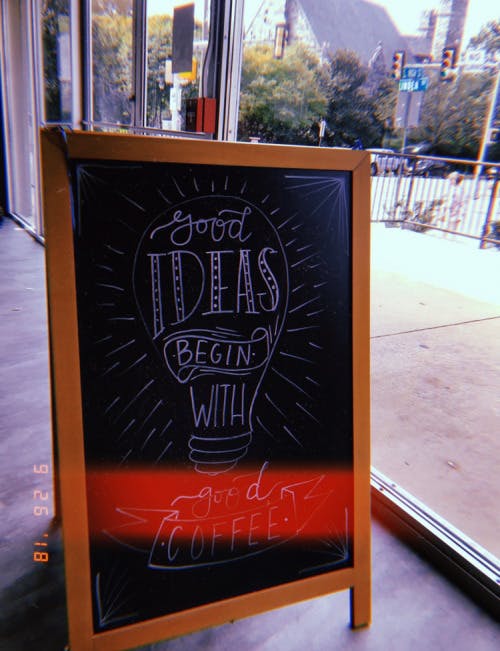 good
IDEAS
BEGIN
WITH
good
COFFEE
9 26 '18